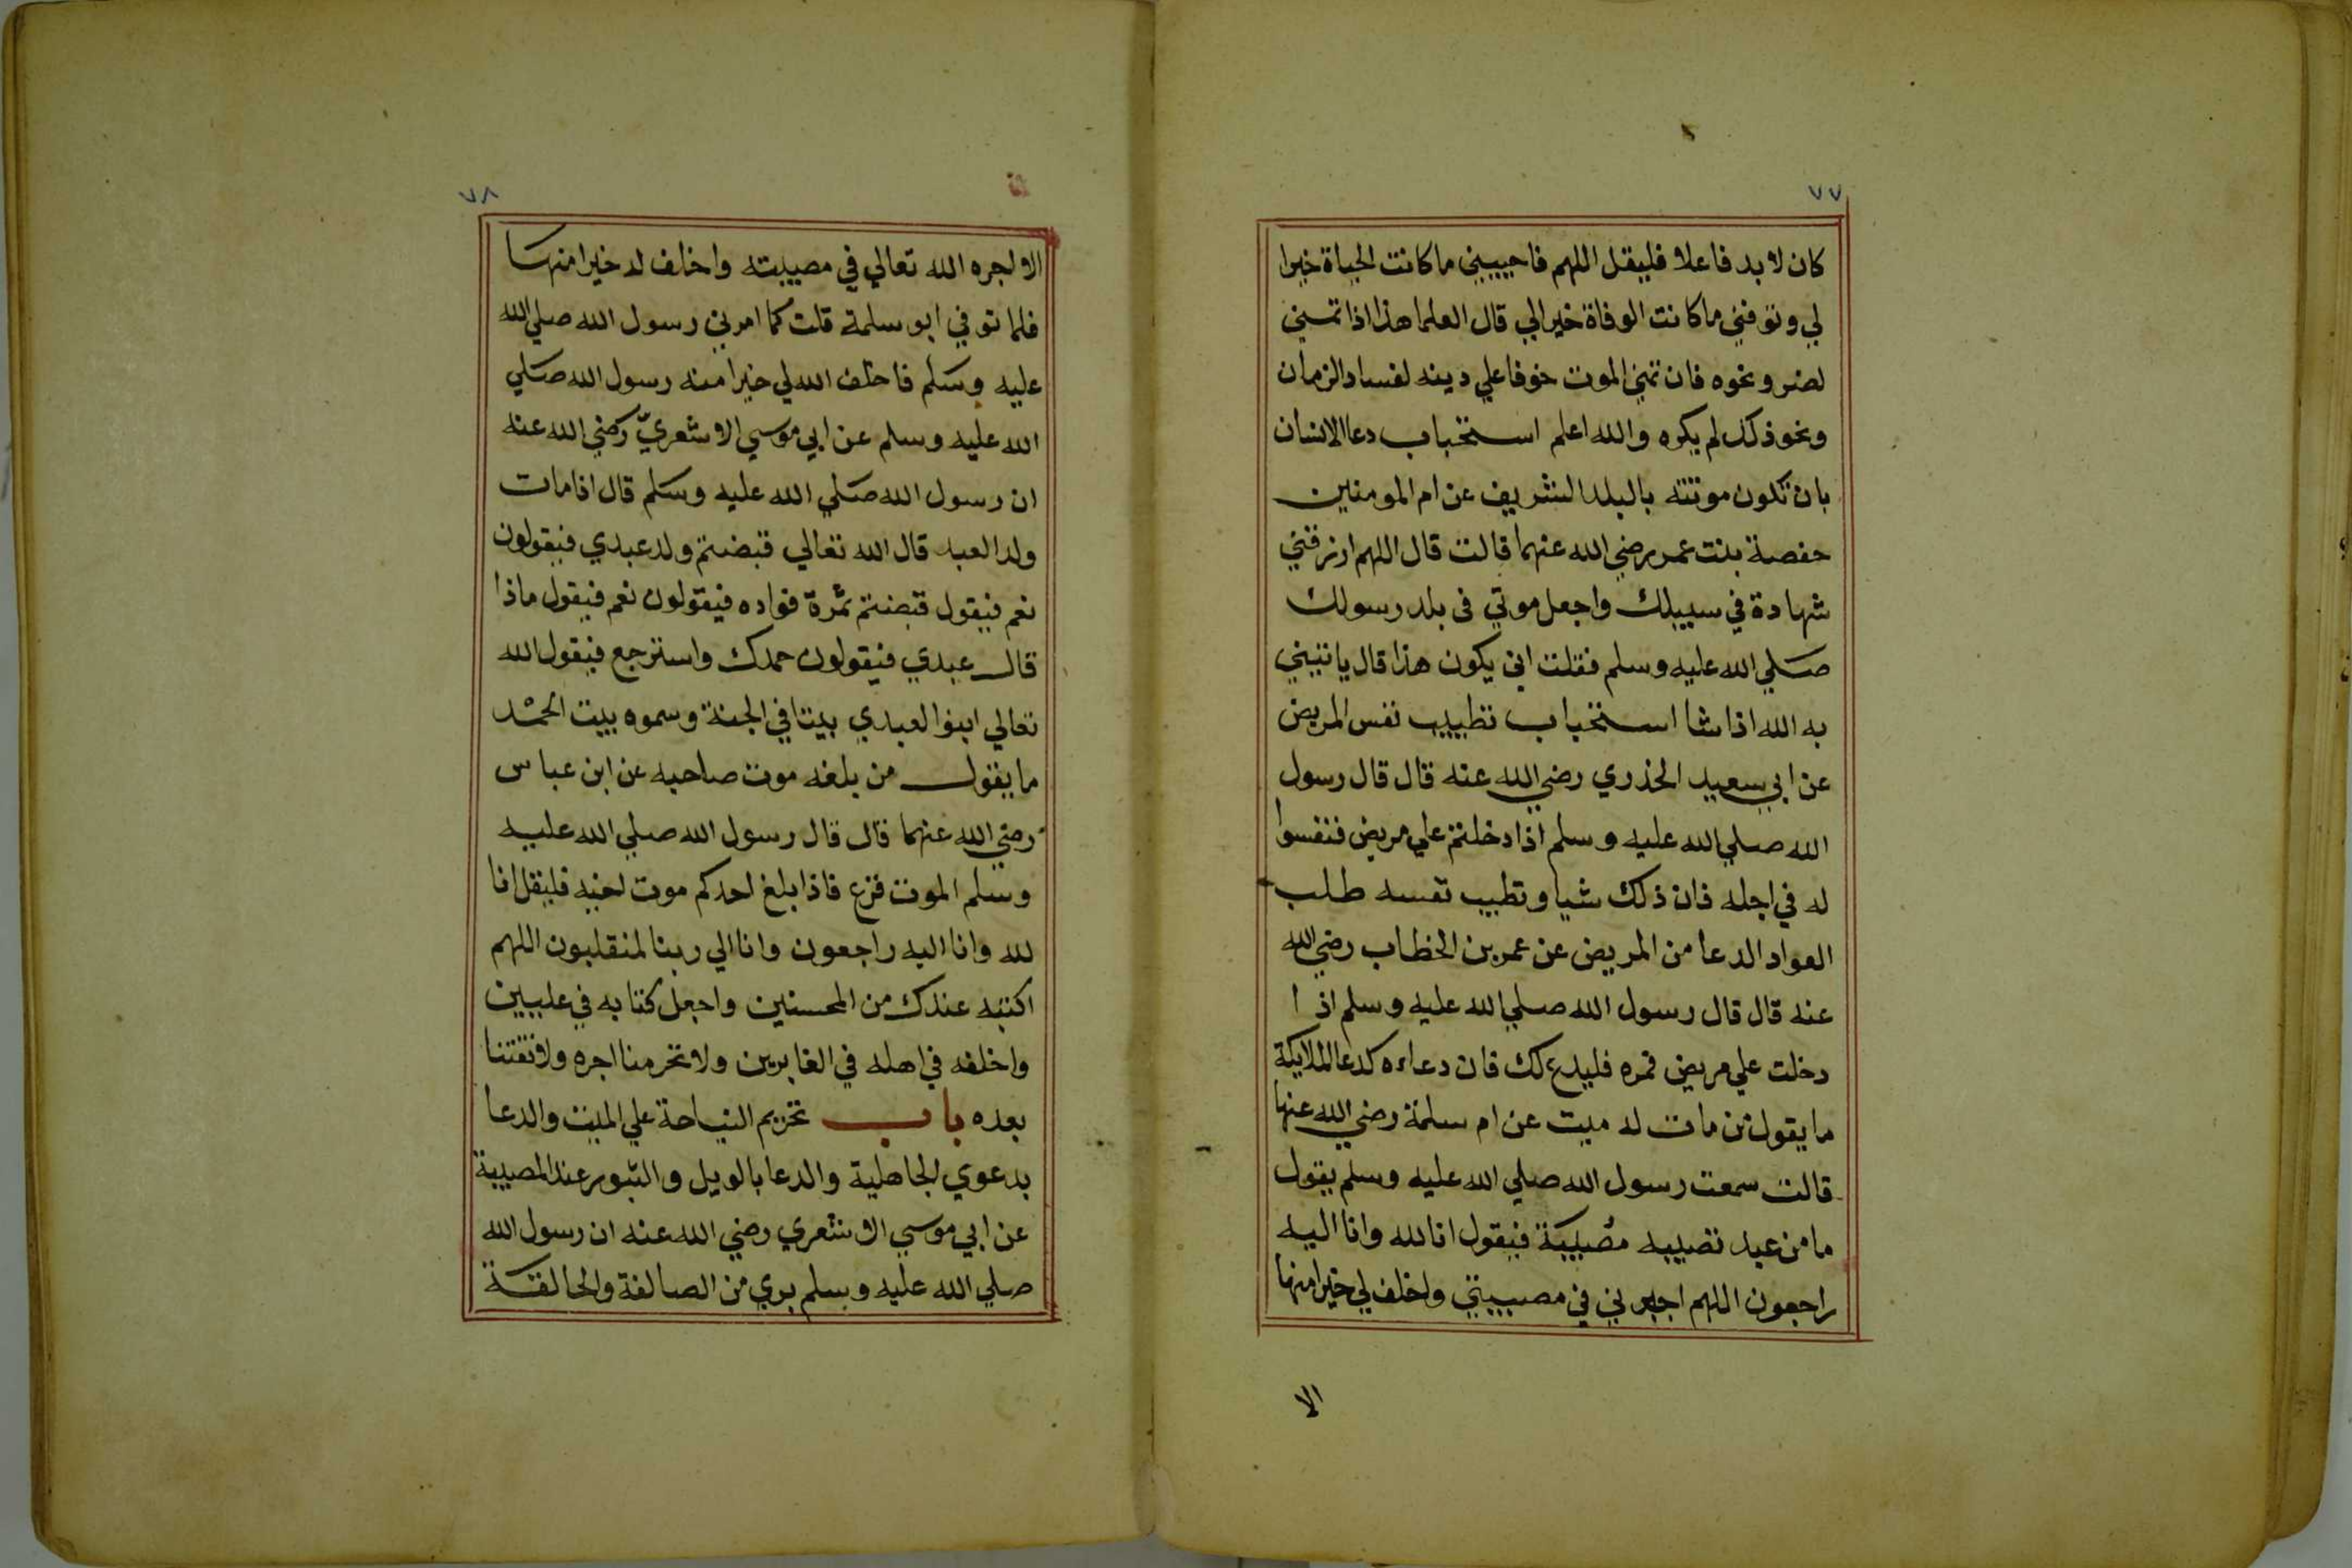 ٧٧
كان لا بد فاعلا فليقل اللهم فاحييني ما كانت الحياة خيرا
لي وتوفني ما كانت الوفاة خيرا لي قال العلما هذا اذا تمني
لضر ونحوه فان تمني الموت خوفا علي دينه لفساد الزمان
ونحو ذلك لم يكره والله اعلم استحباب دعا الانسان
بان تكون موتته بالبلد الشريف عن ام المومنين
حفصة بنت عمر رضي الله عنهما قالت قال اللهم ارزقني
شهادة في سبيلك واجعل موتي في بلد رسولك
صلي الله عليه وسلم فقلت اني يكون هذا قال ياتيني
به الله اذا شا استحباب تطييب نفس المريض
عن ابي سعيد الخذري رضي الله عنه قال قال رسول
الله صلي الله عليه وسلم اذا دخلتم علي مريض فنفسوا
له في اجله فان ذلك شيا وتطييب نفسه طلب
العواد الدعا من المريض عن عمر بن الخطاب رضي الله
عنه قال قال رسول الله صلي الله عليه وسلم اذا
دخلت علي مريض فمره فليدع لك فان دعاءه كدعا الملايكة
ما يقول من مات له ميت عن ام سلمة رضي الله عنها
قالت سمعت رسول الله صلي الله عليه وسلم يقول
ما من عبد تصيبه مصيبة فيقول انا لله وانا اليه
راجعون اللهم اجبرني في مصيبتي واخلف لي خيرا منها
الا
٧٨
الا اجره الله تعالي في مصيبته واخلف له خيرا منها
فلما توفي ابو سلمة قلت كما امرني رسول الله صلي الله
عليه وسلم فاخلف الله لي خيرا منه رسول الله صلي
الله عليه وسلم عن ابي موسي الاشعري رضي الله عنه
ان رسول الله صلي الله عليه وسلم قال اذا مات
ولد العبد قال الله تعالي قبضتم ولد عبدي فيقولون
نعم فيقول قبضتم ثمرة فواده فيقولون نعم فيقول ماذا
قال عبدي فيقولون حمدك واسترجع فيقول الله
تعالي ابنوا لعبدي بيتا في الجنة وسموه بيت الحمد
ما يقول من بلغه موت صاحبه عن ابن عباس
رضي الله عنهما قال قال رسول الله صلي الله عليه
وسلم الموت فزع فاذا بلغ احدكم موت اخيه فليقل انا
لله وانا اليه راجعون وانا الي ربنا لمنقلبون اللهم
اكتبه عندك من المحسنين واجعل كتابه في عليين
واخلفه في اهله في الغابرين ولا تحرمنا اجره ولا تفتنا
بعده باب تحريم النياحة علي الميت والدعا
بدعوي الجاهلية والدعا بالويل والثبور عند المصيبة
عن ابي موسي الاشعري رضي الله عنه ان رسول الله
صلي الله عليه وسلم بري من الصالقة والحالقة